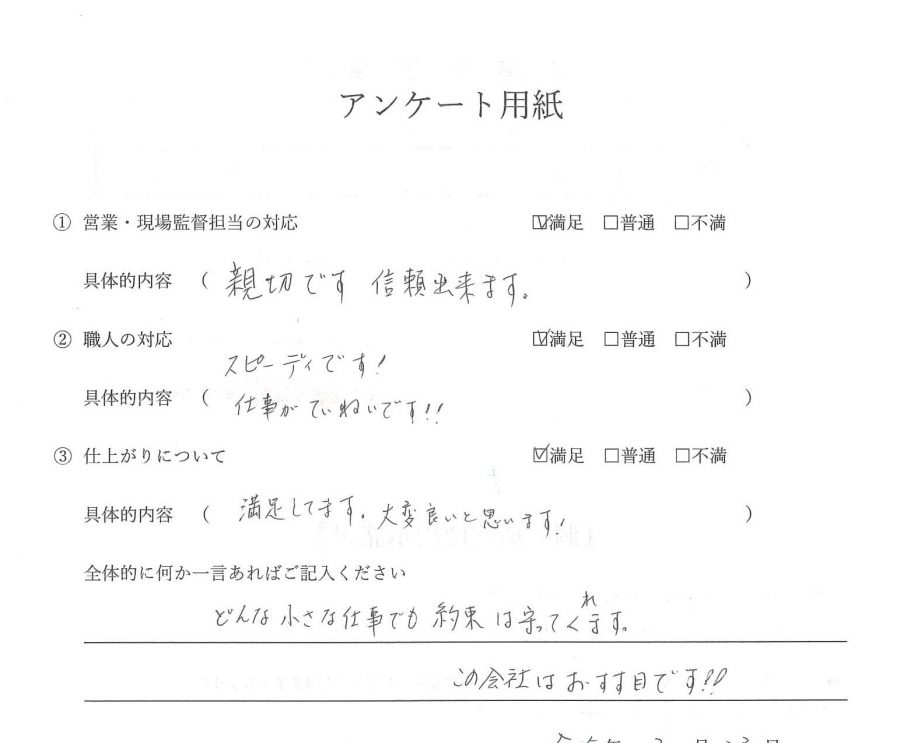 アンケート用紙
① 営業・現場監督担当の対応 ☑満足 □普通 □不満
具体的内容 ( 親切です 信頼出来ます。 )
② 職人の対応 ☑満足 □普通 □不満
スピーディです!
具体的内容 ( 仕事がていねいです!! )
③ 仕上がりについて ☑満足 □普通 □不満
具体的内容 ( 満足してます。大変良いと思います! )
全体的に何か一言あればご記入ください
どんな小さな仕事でも約束は守ってくれます。
この会社はおすす目です!!